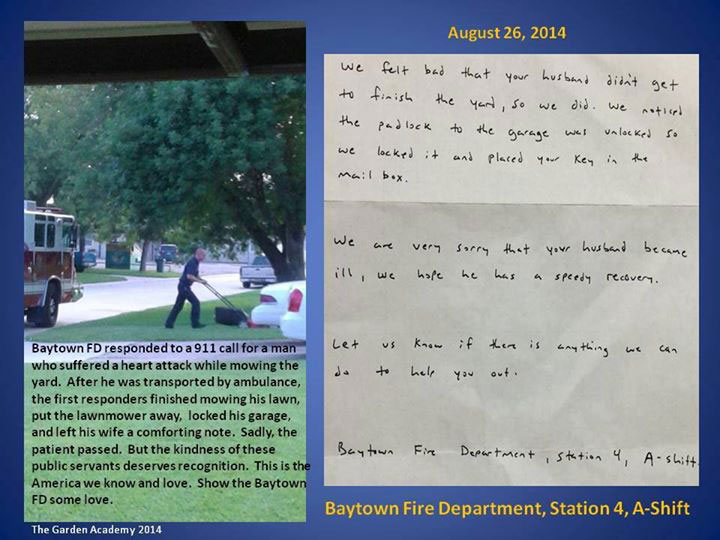 August 26, 2014
We felt bad that your husband didn't get
to finish the yard, so we did. We noticed
the padlock to the garage was unlocked so
we locked it and placed your key in the
mail box.
We are very sorry that your husband became
ill, we hope he has a speedy recovery.
Let us know if there is anything we can
do to help you out.
Baytown Fire Department, Station 4, A-shift.
Baytown FD responded to a 911 call for a man
who suffered a heart attack while mowing the
yard. After he was transported by ambulance,
the first responders finished mowing his lawn,
put the lawnmower away, locked his garage,
and left his wife a comforting note. Sadly, the
patient passed. But the kindness of these
public servants deserves recognition. This is the
America we know and love. Show the Baytown
FD some love.
Baytown Fire Department, Station 4, A-Shift
The Garden Academy 2014